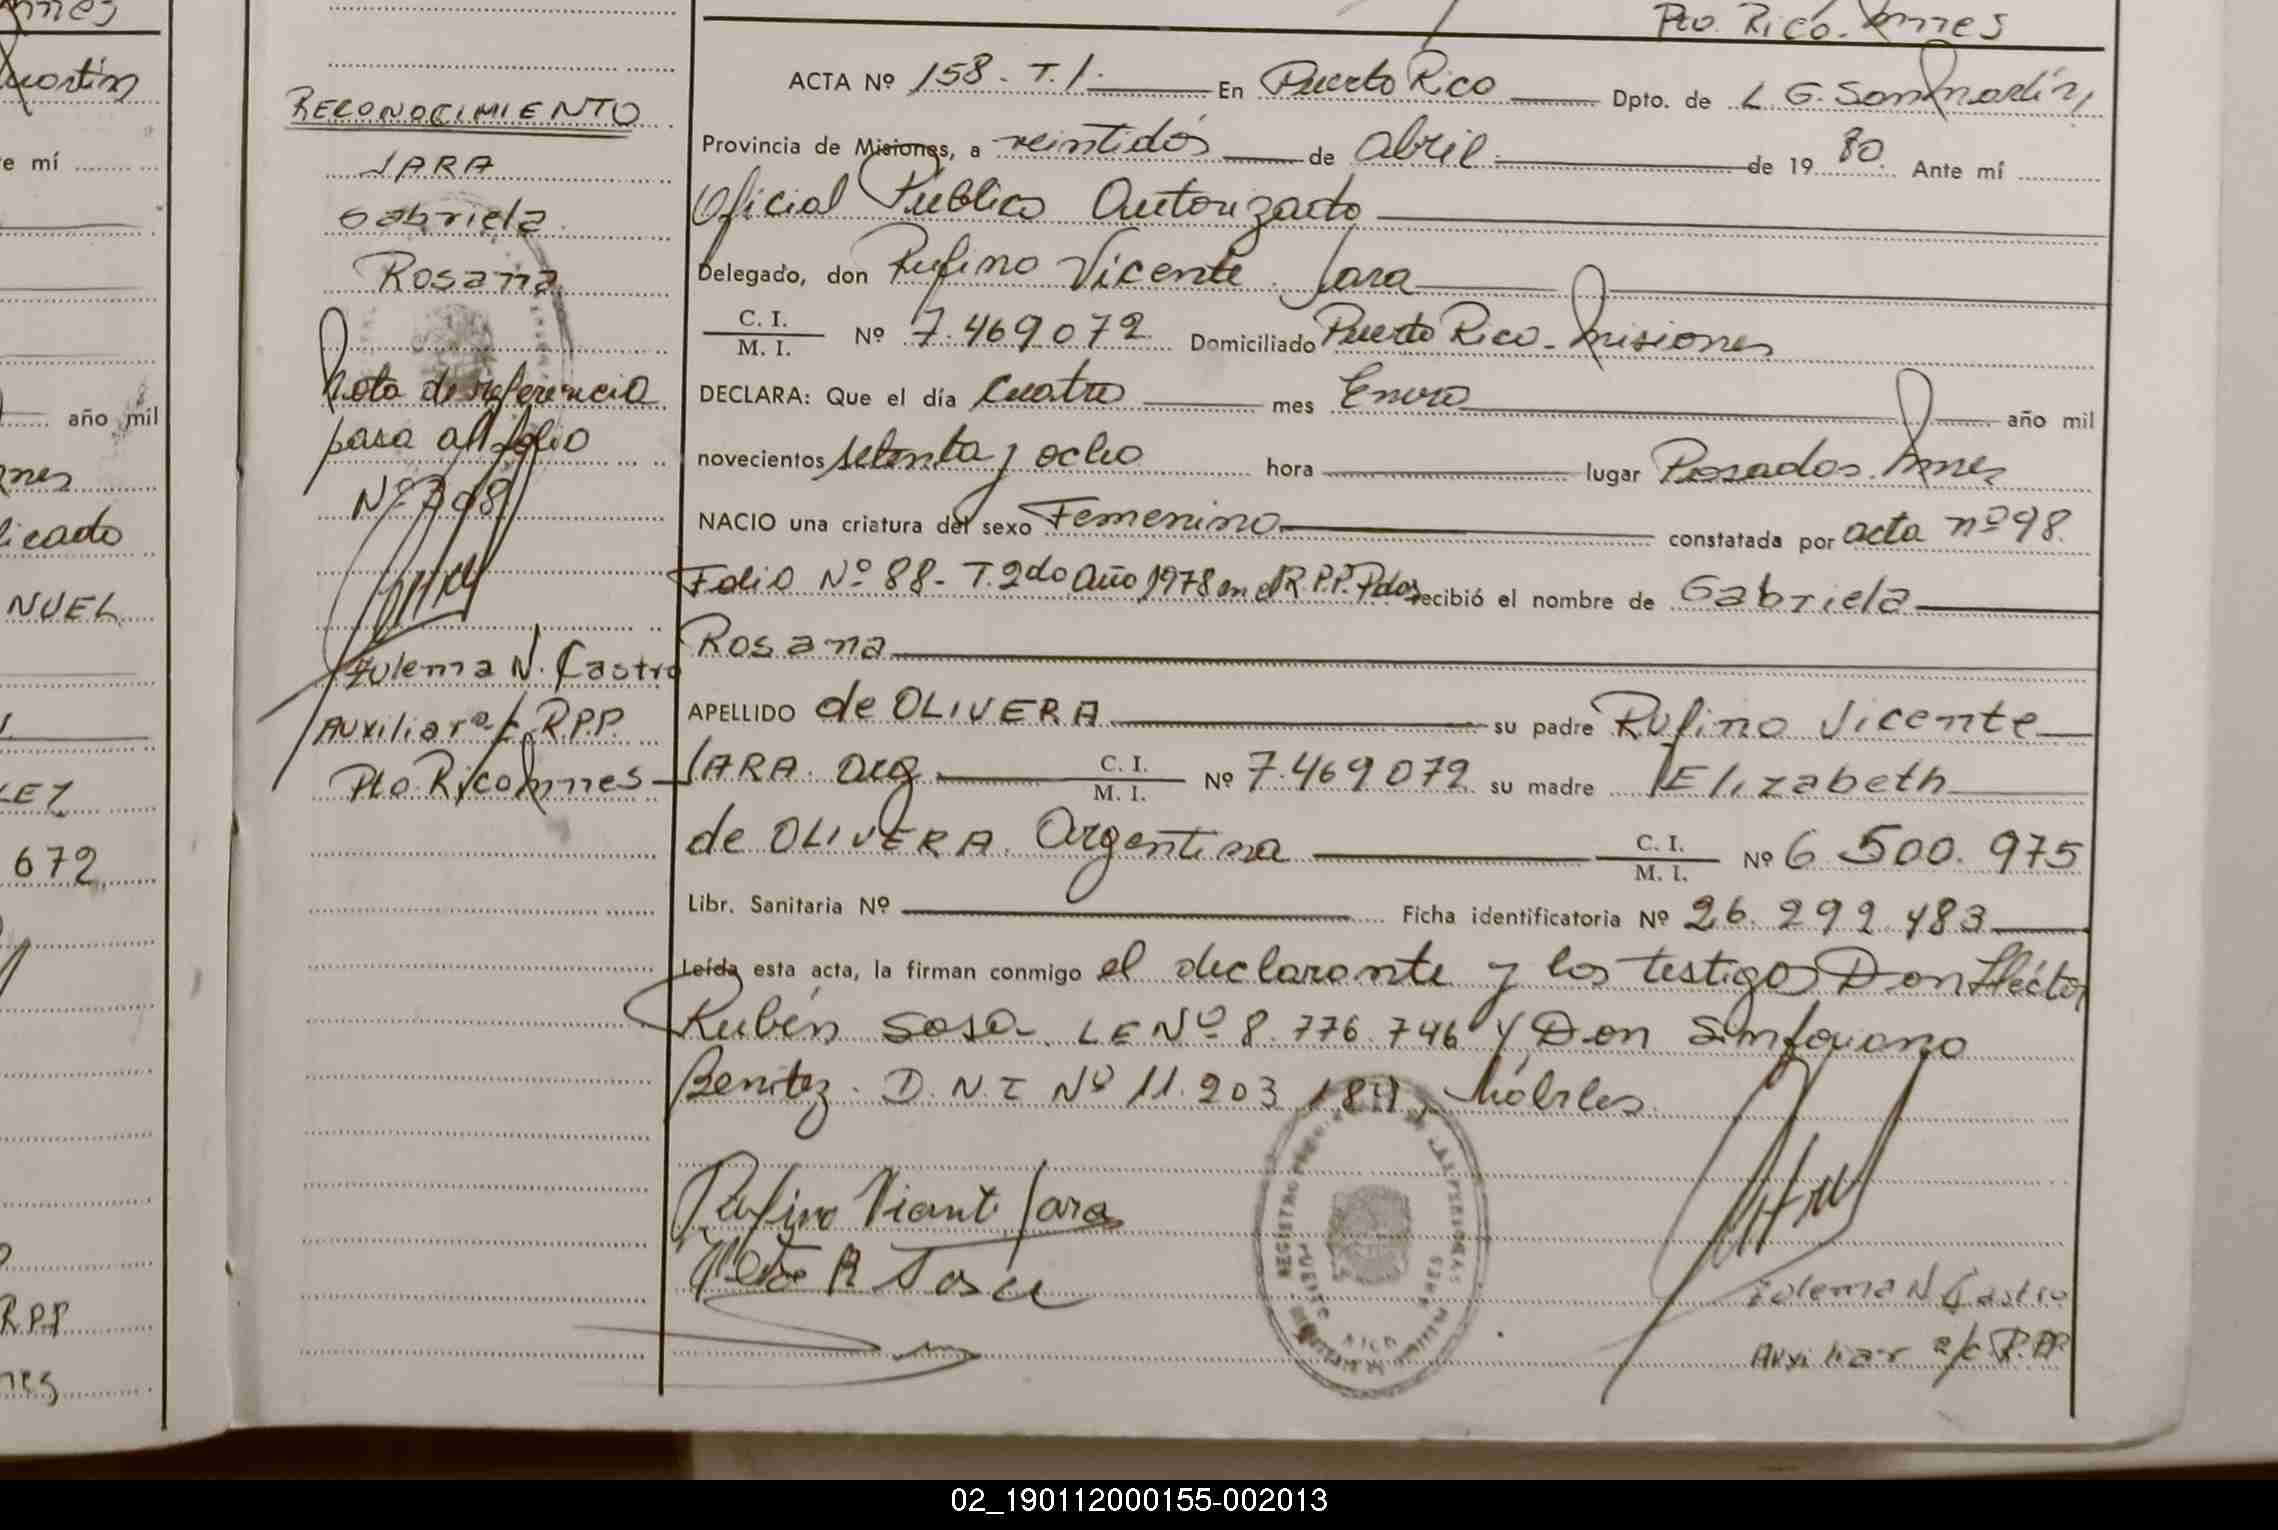 nnes
Pto. Rico. Mnes
ACTA Nº 158. T. 1. En Puerto Rico Dpto. de L. G. San Martín,
Provincia de Misiones, a veintidós de abril de 19 80. Ante mí
Oficial Público Autorizado
Delegado, don Rufino Vicente Jara
C. I.
M. I. Nº 7.469072 Domiciliado Puerto Rico - Misiones
DECLARA: Que el día cuatro mes Enero año mil
novecientos setenta y ocho hora lugar Posadas. Mnes
NACIO una criatura del sexo Femenino constatada por acta nº 98.
Folio Nº 88 - T. 2do Año 1978 en el R.P.P. Pdas recibió el nombre de Gabriela
Rosana
APELLIDO de OLIVERA su padre Rufino Vicente
JARA. arg C. I.
M. I. Nº 7.469072 su madre Elizabeth
de OLIVERA. Argentina C. I.
M. I. Nº 6.500.975
Libr. Sanitaria Nº Ficha identificatoria Nº 26.292.483
Leída esta acta, la firman conmigo el declarante y los testigos Don Héctor
Rubén Sosa. LE Nº 8.776.746 y Don Sinforiano
Benitez. D.N.I Nº 11.203.184, hábiles.
Rufino Vicente Jara
R Sosa
Zulema N Castro
Auxiliar a/c R.P.P.
RECONOCIMIENTO
JARA
Gabriela
Rosana
Nota de referencia
pasa al folio
Nº
Zulema N. Castro
Auxiliar a/c R.P.P.
Pto. Rico Mnes
REGISTRO DE LAS PERSONAS
PUERTO RICO
Martín
e mí
año mil
nes
licado
NUEL
LEZ
672
R.P.P
nes
02_190112000155-002013